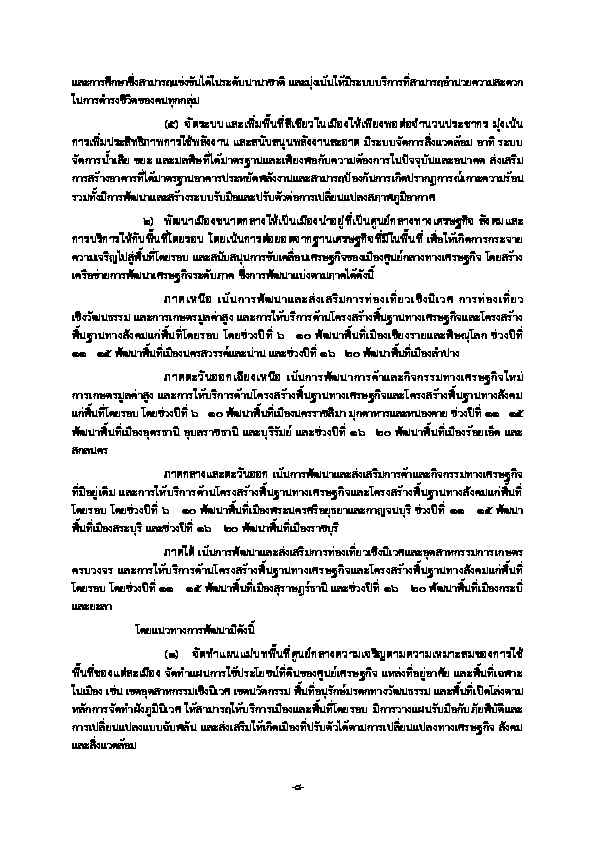 และการศึกษาซึ่งสามารถแข่งขันได้ในระดับนานาชาติ และมุ่งเน้นให้มีระบบบริการที่สามารถอำนวยความสะดวก
ในการดำรงชีวิตของคนทุกกลุ่ม
(๕) จัดระบบและเพิ่มพื้นที่สีเขียวในเมืองให้เพียงพอต่อจำนวนประชากร มุ่งเน้น
การเพิ่มประสิทธิภาพการใช้พลังงาน และสนับสนุนพลังงานสะอาด มีระบบจัดการสิ่งแวดล้อม อาทิ ระบบ
จัดการน้ำเสีย ขยะ และมลพิษที่ได้มาตรฐานและเพียงพอกับความต้องการในปัจจุบันและอนาคต ส่งเสริม
การสร้างอาคารที่ได้มาตรฐานอาคารประหยัดพลังงานและสามารถป้องกันการเกิดปรากฏการณ์เกาะความร้อน
รวมทั้งมีการพัฒนาและสร้างระบบรับมือและปรับตัวต่อการเปลี่ยนแปลงสภาพภูมิอากาศ
๒) พัฒนาเมืองขนาดกลางให้เป็นเมืองน่าอยู่ที่เป็นศูนย์กลางทางเศรษฐกิจ สังคมและ
การบริการให้กับพื้นที่โดยรอบ โดยเน้นการต่อยอดจากฐานเศรษฐกิจที่มีในพื้นที่ เพื่อให้เกิดการกระจาย
ความเจริญไปสู่พื้นที่โดยรอบ และสนับสนุนการขับเคลื่อนเศรษฐกิจของเมืองศูนย์กลางทางเศรษฐกิจ โดยสร้าง
เครือข่ายการพัฒนาเศรษฐกิจระดับภาค ซึ่งการพัฒนาแบ่งตามภาคได้ดังนี้
ภาคเหนือ เน้นการพัฒนาและส่งเสริมการท่องเที่ยวเชิงนิเวศ การท่องเที่ยว
เชิงวัฒนธรรม และการเกษตรมูลค่าสูง และการให้บริการด้านโครงสร้างพื้นฐานทางเศรษฐกิจและโครงสร้าง
พื้นฐานทางสังคมแก่พื้นที่โดยรอบ โดยช่วงปีที่ ๖ ๑๐ พัฒนาพื้นที่เมืองเชียงรายและพิษณุโลก ช่วงปีที่
๑๑ ๑๕ พัฒนาพื้นที่เมืองนครสวรรค์และน่าน และช่วงปีที่ ๑๖ ๒๐ พัฒนาพื้นที่เมืองลำปาง
ภาคตะวันออกเฉียงเหนือ เน้นการพัฒนาการค้าและกิจกรรมทางเศรษฐกิจใหม่
การเกษตรมูลค่าสูง และการให้บริการด้านโครงสร้างพื้นฐานทางเศรษฐกิจและโครงสร้างพื้นฐานทางสังคม
แก่พื้นที่โดยรอบ โดยช่วงปีที่ ๖ ๑๐ พัฒนาพื้นที่เมืองนครราชสีมา มุกดาหารและหนองคาย ช่วงปีที่ ๑๑ ๑๕
พัฒนาพื้นที่เมืองอุดรธานี อุบลราชธานี และบุรีรัมย์ และช่วงปีที่ ๑๖ ๒๐ พัฒนาพื้นที่เมืองร้อยเอ็ด และ
สกลนคร
ภาคกลางและตะวันออก เน้นการพัฒนาและส่งเสริมการค้าและกิจกรรมทางเศรษฐกิจ
ที่มีอยู่เดิม และการให้บริการด้านโครงสร้างพื้นฐานทางเศรษฐกิจและโครงสร้างพื้นฐานทางสังคมแก่พื้นที่
โดยรอบ โดยช่วงปีที่ ๖ ๑๐ พัฒนาพื้นที่เมืองพระนครศรีอยุธยาและกาญจนบุรี ช่วงปีที่ ๑๑ ๑๕ พัฒนา
พื้นที่เมืองสระบุรี และช่วงปีที่ ๑๖ ๒๐ พัฒนาพื้นที่เมืองราชบุรี
ภาคใต้ เน้นการพัฒนาและส่งเสริมการท่องเที่ยวเชิงนิเวศและอุตสาหกรรมการเกษตร
ครบวงจร และการให้บริการด้านโครงสร้างพื้นฐานทางเศรษฐกิจและโครงสร้างพื้นฐานทางสังคมแก่พื้นที่
โดยรอบ โดยช่วงปีที่ ๑๑ ๑๕ พัฒนาพื้นที่เมืองสุราษฎร์ธานี และช่วงปีที่ ๑๖ ๒๐ พัฒนาพื้นที่เมืองกระบี่
และยะลา
โดยแนวทางการพัฒนามีดังนี้
(๑) จัดทำแผนแม่บทพื้นที่ศูนย์กลางความเจริญตามความเหมาะสมของการใช้
พื้นที่ของแต่ละเมือง จัดทำแผนการใช้ประโยชน์ที่ดินของศูนย์เศรษฐกิจ แหล่งที่อยู่อาศัย และพื้นที่เฉพาะ
ในเมือง เช่น เขตอุตสาหกรรมเชิงนิเวศ เขตนวัตกรรม พื้นที่อนุรักษ์มรดกทางวัฒนธรรม และพื้นที่เปิดโล่งตาม
หลักการจัดทำผังภูมินิเวศ ให้สามารถให้บริการเมืองและพื้นที่โดยรอบ มีการวางแผนรับมือกับภัยพิบัติและ
การเปลี่ยนแปลงแบบฉับพลัน และส่งเสริมให้เกิดเมืองที่ปรับตัวได้ตามการเปลี่ยนแปลงทางเศรษฐกิจ สังคม
และสิ่งแวดล้อม
-๘-